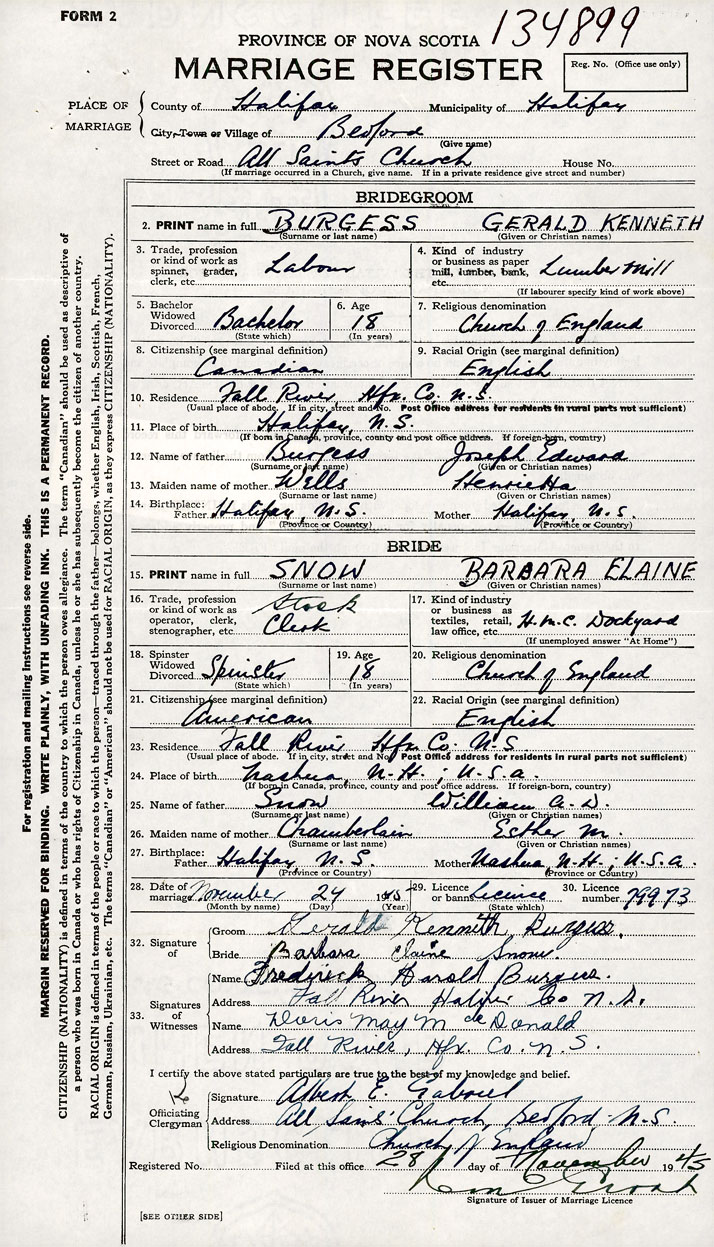 FORM 2
134899
PROVINCE OF NOVA SCOTIA
MARRIAGE REGISTER
Reg. No. (Office use only)
PLACE OF MARRIAGE
County of Halifax Municipality of Halifax
City, Town or Village of Bedford
(Give name)
Street or Road All Saints Church House No.
(If marriage occurred in a Church, give name. If in a private residence give street and number)
BRIDEGROOM
2. PRINT name in full BURGESS GERALD KENNETH
(Surname or last name) (Given or Christian names)
3. Trade, profession or kind of work as spinner, grader, clerk, etc. Labour
4. Kind of industry or business as paper mill, lumber, bank, etc. Lumber Mill
(If labourer specify kind of work above)
5. Bachelor Widowed Divorced Bachelor
(State which)
6. Age 18
(In years)
7. Religious denomination
Church of England
8. Citizenship (see marginal definition)
Canadian
9. Racial Origin (see marginal definition)
English
10. Residence Fall River, Hfx. Co. N.S.
(Usual place of abode. If in city, street and No. Post Office address for residents in rural parts not sufficient)
11. Place of birth Halifax, N.S.
(If born in Canada, province, county and post office address. If foreign-born, country)
12. Name of father Burgess Joseph Edward
(Surname or last name) (Given or Christian names)
13. Maiden name of mother Wells Henrietta
(Surname or last name) (Given or Christian names)
14. Birthplace: Father Halifax, N.S. Mother Halifax, N.S.
(Province or Country) (Province or Country)
BRIDE
15. PRINT name in full SNOW BARBARA ELAINE
(Surname or last name) (Given or Christian names)
16. Trade, profession or kind of work as operator, clerk, stenographer, etc. Stock Clerk
17. Kind of industry or business as textiles, retail, law office, etc. H.M.C. Dockyard
(If unemployed answer "At Home")
18. Spinster Widowed Divorced Spinster
(State which)
19. Age 18
(In years)
20. Religious denomination
Church of England
21. Citizenship (see marginal definition)
American
22. Racial Origin (see marginal definition)
English
23. Residence Fall River Hfx Co. N.S.
(Usual place of abode. If in city, street and No. Post Office address for residents in rural parts not sufficient)
24. Place of birth Nashua, N.H.; U.S.A.
(If born in Canada, province, county and post office address. If foreign-born, country)
25. Name of father Snow William A. D.
(Surname or last name) (Given or Christian names)
26. Maiden name of mother Chamberlain Esther M.
(Surname or last name) (Given or Christian names)
27. Birthplace: Father Halifax, N.S. Mother Nashua, N.H., U.S.A.
(Province or Country) (Province or Country)
28. Date of marriage November 24 1945 29. Licence or banns licence 30. Licence number 79973
(Month by name) (Day) (Year) (State which)
32. Signature of
Groom Gerald Kenneth Burgess.
Bride Barbara Elaine Snow.
33. Signatures of Witnesses
Name Frederick Harold Burgess.
Address Fall River Halifax Co N.S.
Name Doris May McDonald
Address Fall River, Hfx. Co. N.S.
I certify the above stated particulars are true to the best of my knowledge and belief.
Officiating Clergyman
Signature Albert E. Gabriel
Address All Saints' Church, Bedford N.S.
Religious Denomination Church of England
Registered No. Filed at this office 28 day of November 1945
Signature of Issuer of Marriage Licence
[SEE OTHER SIDE]
For registration and mailing instructions see reverse side.
MARGIN RESERVED FOR BINDING. WRITE PLAINLY, WITH UNFADING INK. THIS IS A PERMANENT RECORD.
CITIZENSHIP (NATIONALITY) is defined in terms of the country to which the person owes allegiance. The term "Canadian" should be used as descriptive of
a person who was born in Canada or who has rights of Citizenship in Canada, unless he or she has subsequently become the citizen of another country.
RACIAL ORIGIN is defined in terms of the people or race to which the person—traced through the father—belongs, whether English, Irish, Scottish, French,
German, Russian, Ukrainian, etc. The terms "Canadian" or "American" should not be used for RACIAL ORIGIN, as they express CITIZENSHIP (NATIONALITY).